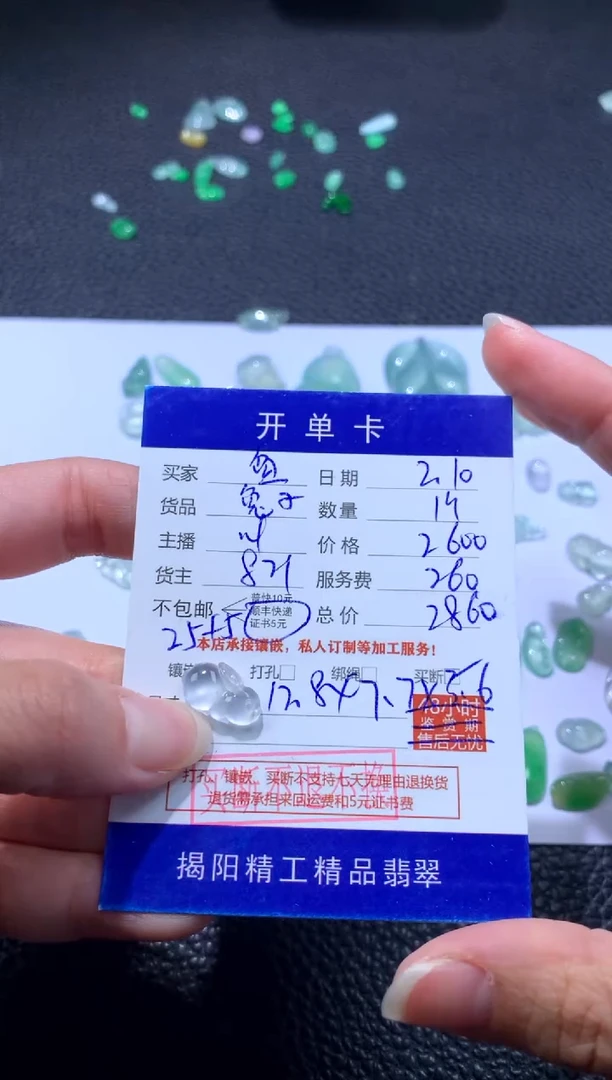 开单卡
买家 鱼 日期 2.10
货品 兔子 数量 1件
主播 价格 2600
货主 821 服务费 260
不包邮 普快10元 顺丰快递 证书5元 总价 2860
25+5
本店承接镶嵌，私人订制等加工服务！
镶嵌 打孔 绑绳 买断
12.8×7.7×5.6
48小时
鉴赏期
售后无忧
买断不退不换
打孔、镶嵌、买断不支持七天无理由退换货
退货需承担来回运费和5元证书费
揭阳精工精品翡翠